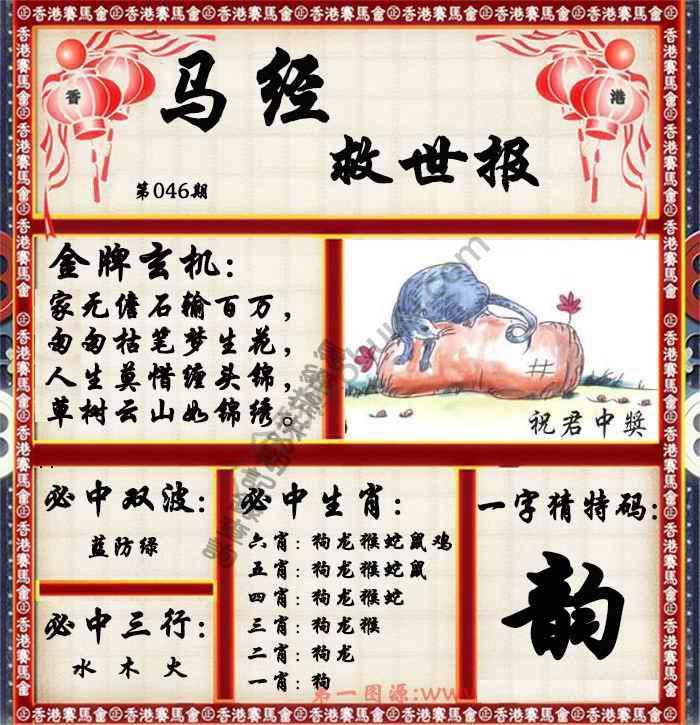 香港賽馬會
香
港
马经
救世报
第046期
金牌玄机：
家无儋石输百万，
匆匆枯笔梦生花，
人生莫惜缠头锦，
草树云山如锦绣。
祝君中獎
必中双波：
蓝防绿
必中三行：
水 木 火
必中生肖：
六肖：狗龙猴蛇鼠鸡
五肖：狗龙猴蛇鼠
四肖：狗龙猴蛇
三肖：狗龙猴
二肖：狗龙
一肖：狗
一字猜特码：
韵
第一图源:www